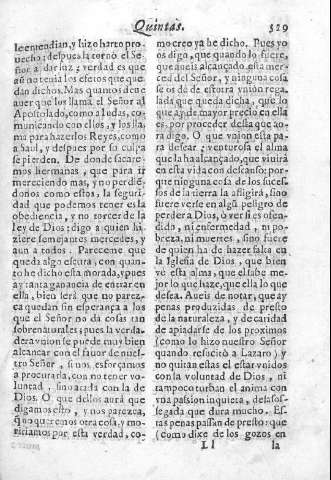 Quintas. 529
le entendian, y hizo harto pro-
uecho; despues la tornò el Se-
ñor a dar luz; verdad es que
aũ no tenia los efetos que que
dan dichos. Mas quantos deue
auer que los llama el Señor al
Apostolado, como a Iudas, co-
municando con ellos, y los lla-
ma para hazerlos Reyes, como
a Saul, y despues por su culpa
se pierden. De donde sacare-
mos hermanas, que para ir
mereciendo mas, y no perdiẽ-
donos como estos, la seguri-
dad que podemos tener es la
obediencia, y no torcer de la
ley de Dios: digo a quien hi-
ziere semejantes mercedes, y
aun a todos. Pareceme que
queda algo escura, con quan-
to he dicho esta morada, y pues
ay tanta ganancia de entrar en
ella, bien serà que no parez-
ca quedan sin esperança a los
que el Señor no dà cosas tan
sobrenaturales; pues la verda-
dera vnion se puede muy bien
alcançar con el fauor de nues-
tro Señor, si nos esforçamos
a procurarla, con no tener vo-
luntad, sino atada con la de
Dios. O que dellos aurà que
digamos esto, y nos parezca,
q̃ no queremos otra cosa, y mo-
ririamos por esta verdad, co-
mo creo ya he dicho. Pues yo
os digo, que quando lo fuere,
que aueis alcançado esta mer-
ced del Señor, y ninguna cosa
se os dè de estotra vniõn rega-
lada que queda dicha, que lo
que ay de mayor precio en ella
es por proceder desta que ao-
ra digo. O que vnion esta pa-
ra desear; venturosa el alma
que la ha alcançado, que viuirà
en esta vida con descanso: por-
que ninguna cosa de los suces-
sos de la tierra la afligirà, sino
fuere verse en algũ peligro de
perder a Dios, ò ver si es ofen-
dido, ni enfermedad, ni po-
breza, ni muertes, sino fuere
de quien ha de hazer falta en
la Iglesia de Dios, que bien
vè esta alma, que el sabe me-
jor lo que haze, que ella lo que
desea. Aueis de notar, que ay
penas produzidas de presto
de la naturaleza, y de caridad
de apiadarse de los proximos
(como lo hizo nuestro Señor
quando resucitò a Lazaro) y
no quitan estas el estar vnidos
con la voluntad de Dios, ni
tampoco turban el anima con
vna passion inquieta, desasos-
segada que dura mucho. Es-
tas penas passan de presto: que
(como dixe de los gozos en
Ll la